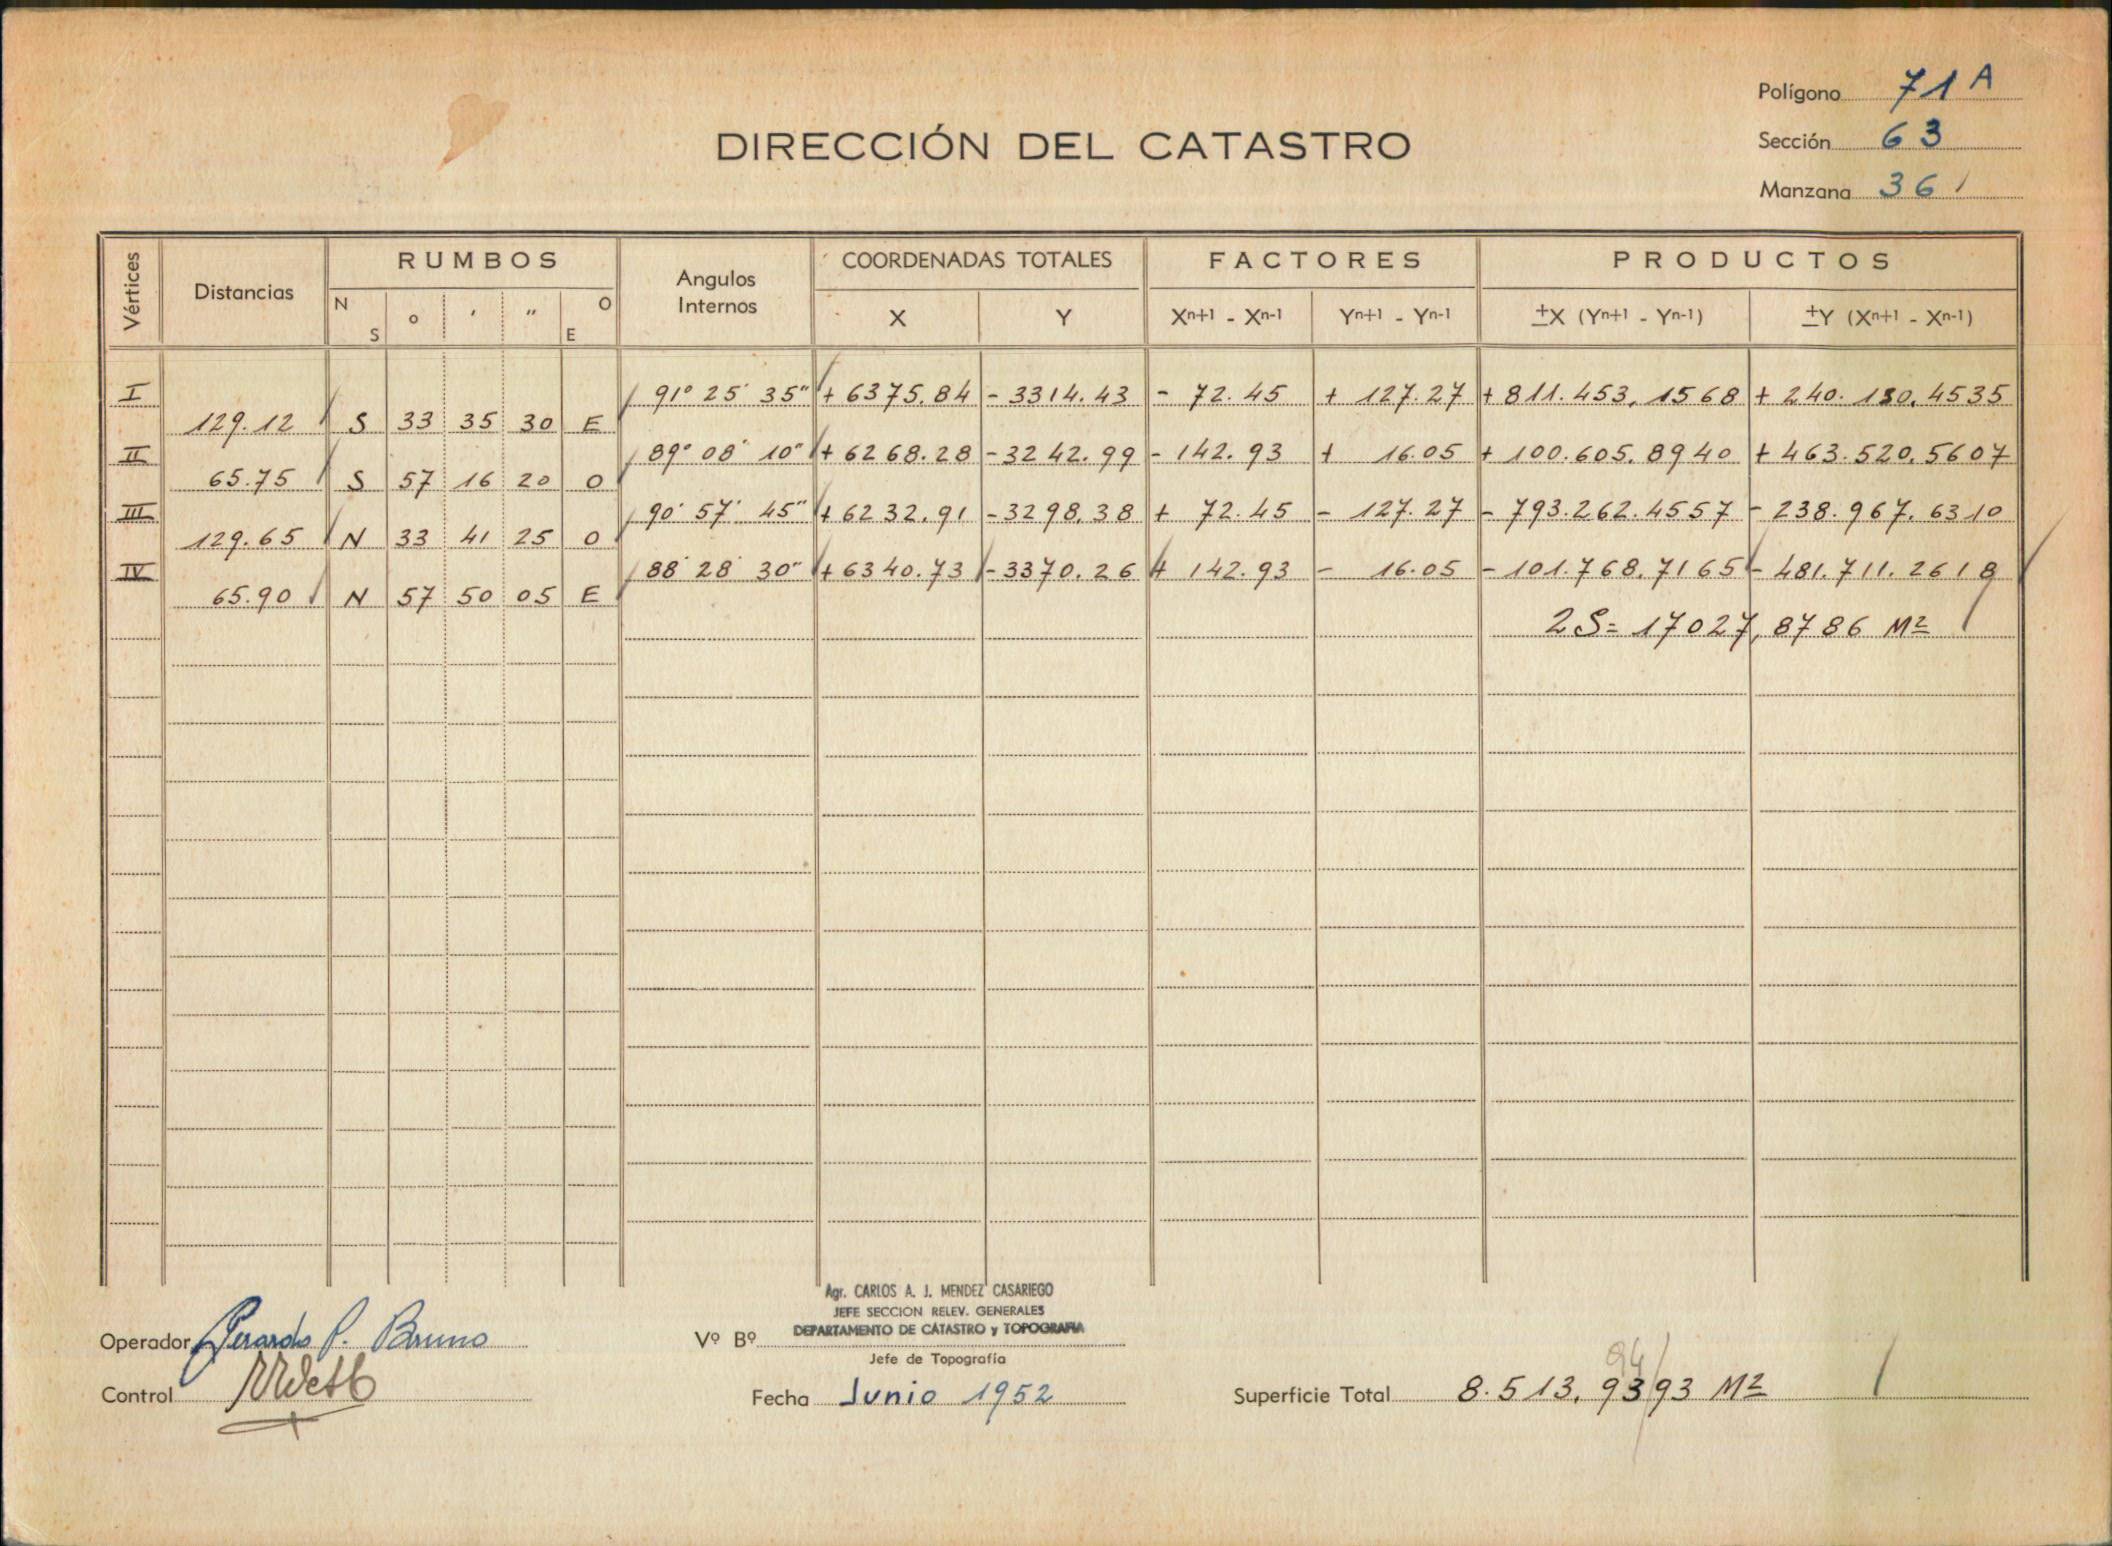 Polígono 71 A
DIRECCIÓN DEL CATASTRO
Sección 63
Manzana 361
Vértices Distancias RUMBOS Angulos Internos COORDENADAS TOTALES FACTORES PRODUCTOS
N S ° ' " O E X Y Xn+1 - Xn-1 Yn+1 - Yn-1 ±X (Yn+1 - Yn-1) ±Y (Xn+1 - Xn-1)
I 91° 25' 35" + 6375.84 - 3314.43 - 72.45 + 127.27 + 811.453,1568 + 240.130.4535
129.12 S 33 35 30 E
II 89° 08' 10" + 6268.28 - 3242.99 - 142.93 + 16.05 + 100.605.8940 + 463.520.5607
65.75 S 57 16 20 O
III 90° 57' 45" + 6232.91 - 3298.38 + 72.45 - 127.27 - 793.262.4557 - 238.967.6310
129.65 N 33 41 25 O
IV 88° 28' 30" + 6340.73 - 3370.26 + 142.93 - 16.05 - 101.768.7165 - 481.711.2618
65.90 N 57 50 05 E
2S = 17027,8786 M2
Agr. CARLOS A. J. MENDEZ CASARIEGO
JEFE SECCION RELEV. GENERALES
DEPARTAMENTO DE CATASTRO y TOPOGRAFIA
Operador Gerardo P. Bruno Vº Bº
Jefe de Topografía
94
Control Fecha Junio 1952 Superficie Total 8.513,9393 M2